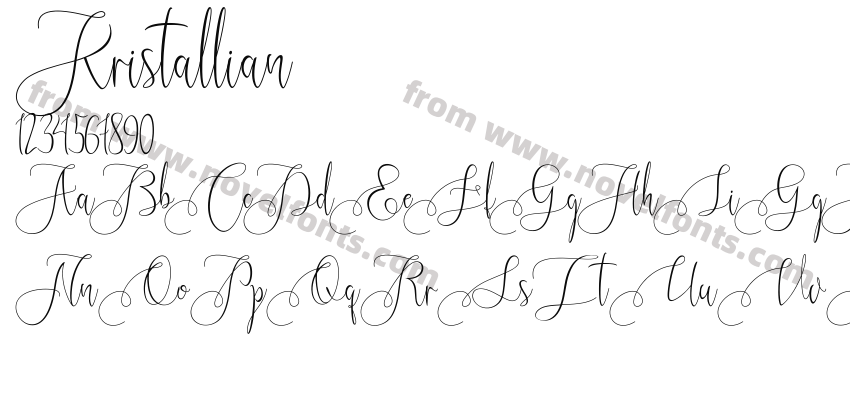 Kristallian
1234567890
Aa Bb Cc Dd Ee Ff Gg Hh Ii Gg
Nn Oo Pp Qq Rr Ss Tt Uu Vv
from www.novelfonts.com
from www.novelfonts.com